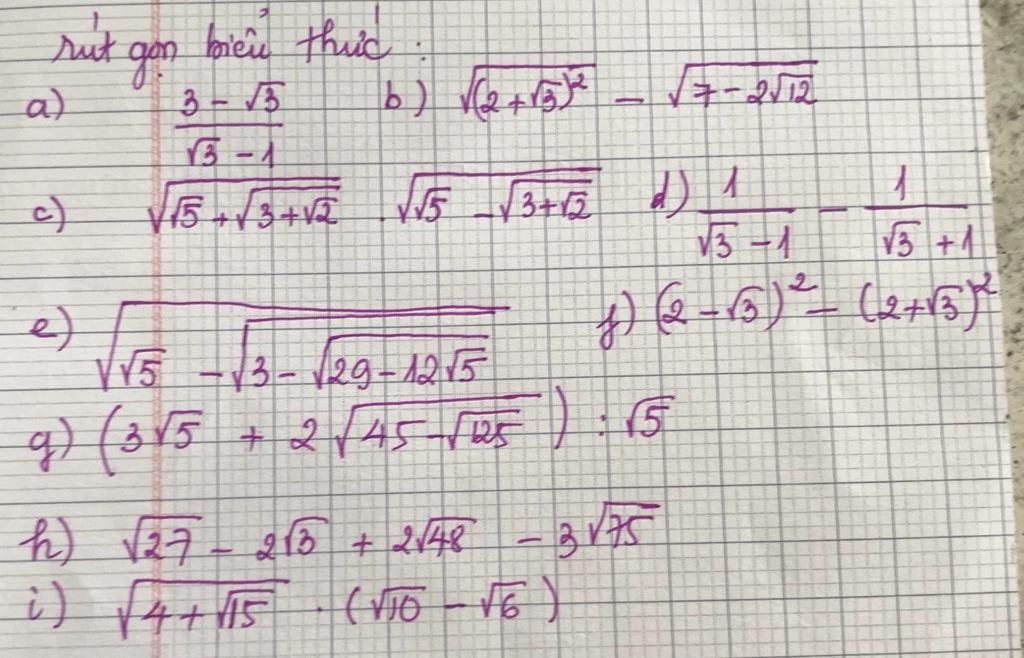 rút gọn biểu thức :
a) (3 - √3)/(√3 - 1) b) √((2 + √3)²) - √(7 - 2√12)
c) √(√5 + √(3 + √2)) . √(√5 - √(3 + √2)) d) 1/(√3 - 1) - 1/(√3 + 1)
e) √(√5 - √(3 - √(29 - 12√5))) f) (2 - √3)² - (2 + √3)²
g) (3√5 + 2√(45 - √125)) : √5
h) √27 - 2√3 + 2√48 - 3√75
i) √(4 + √15) . (√10 - √6)